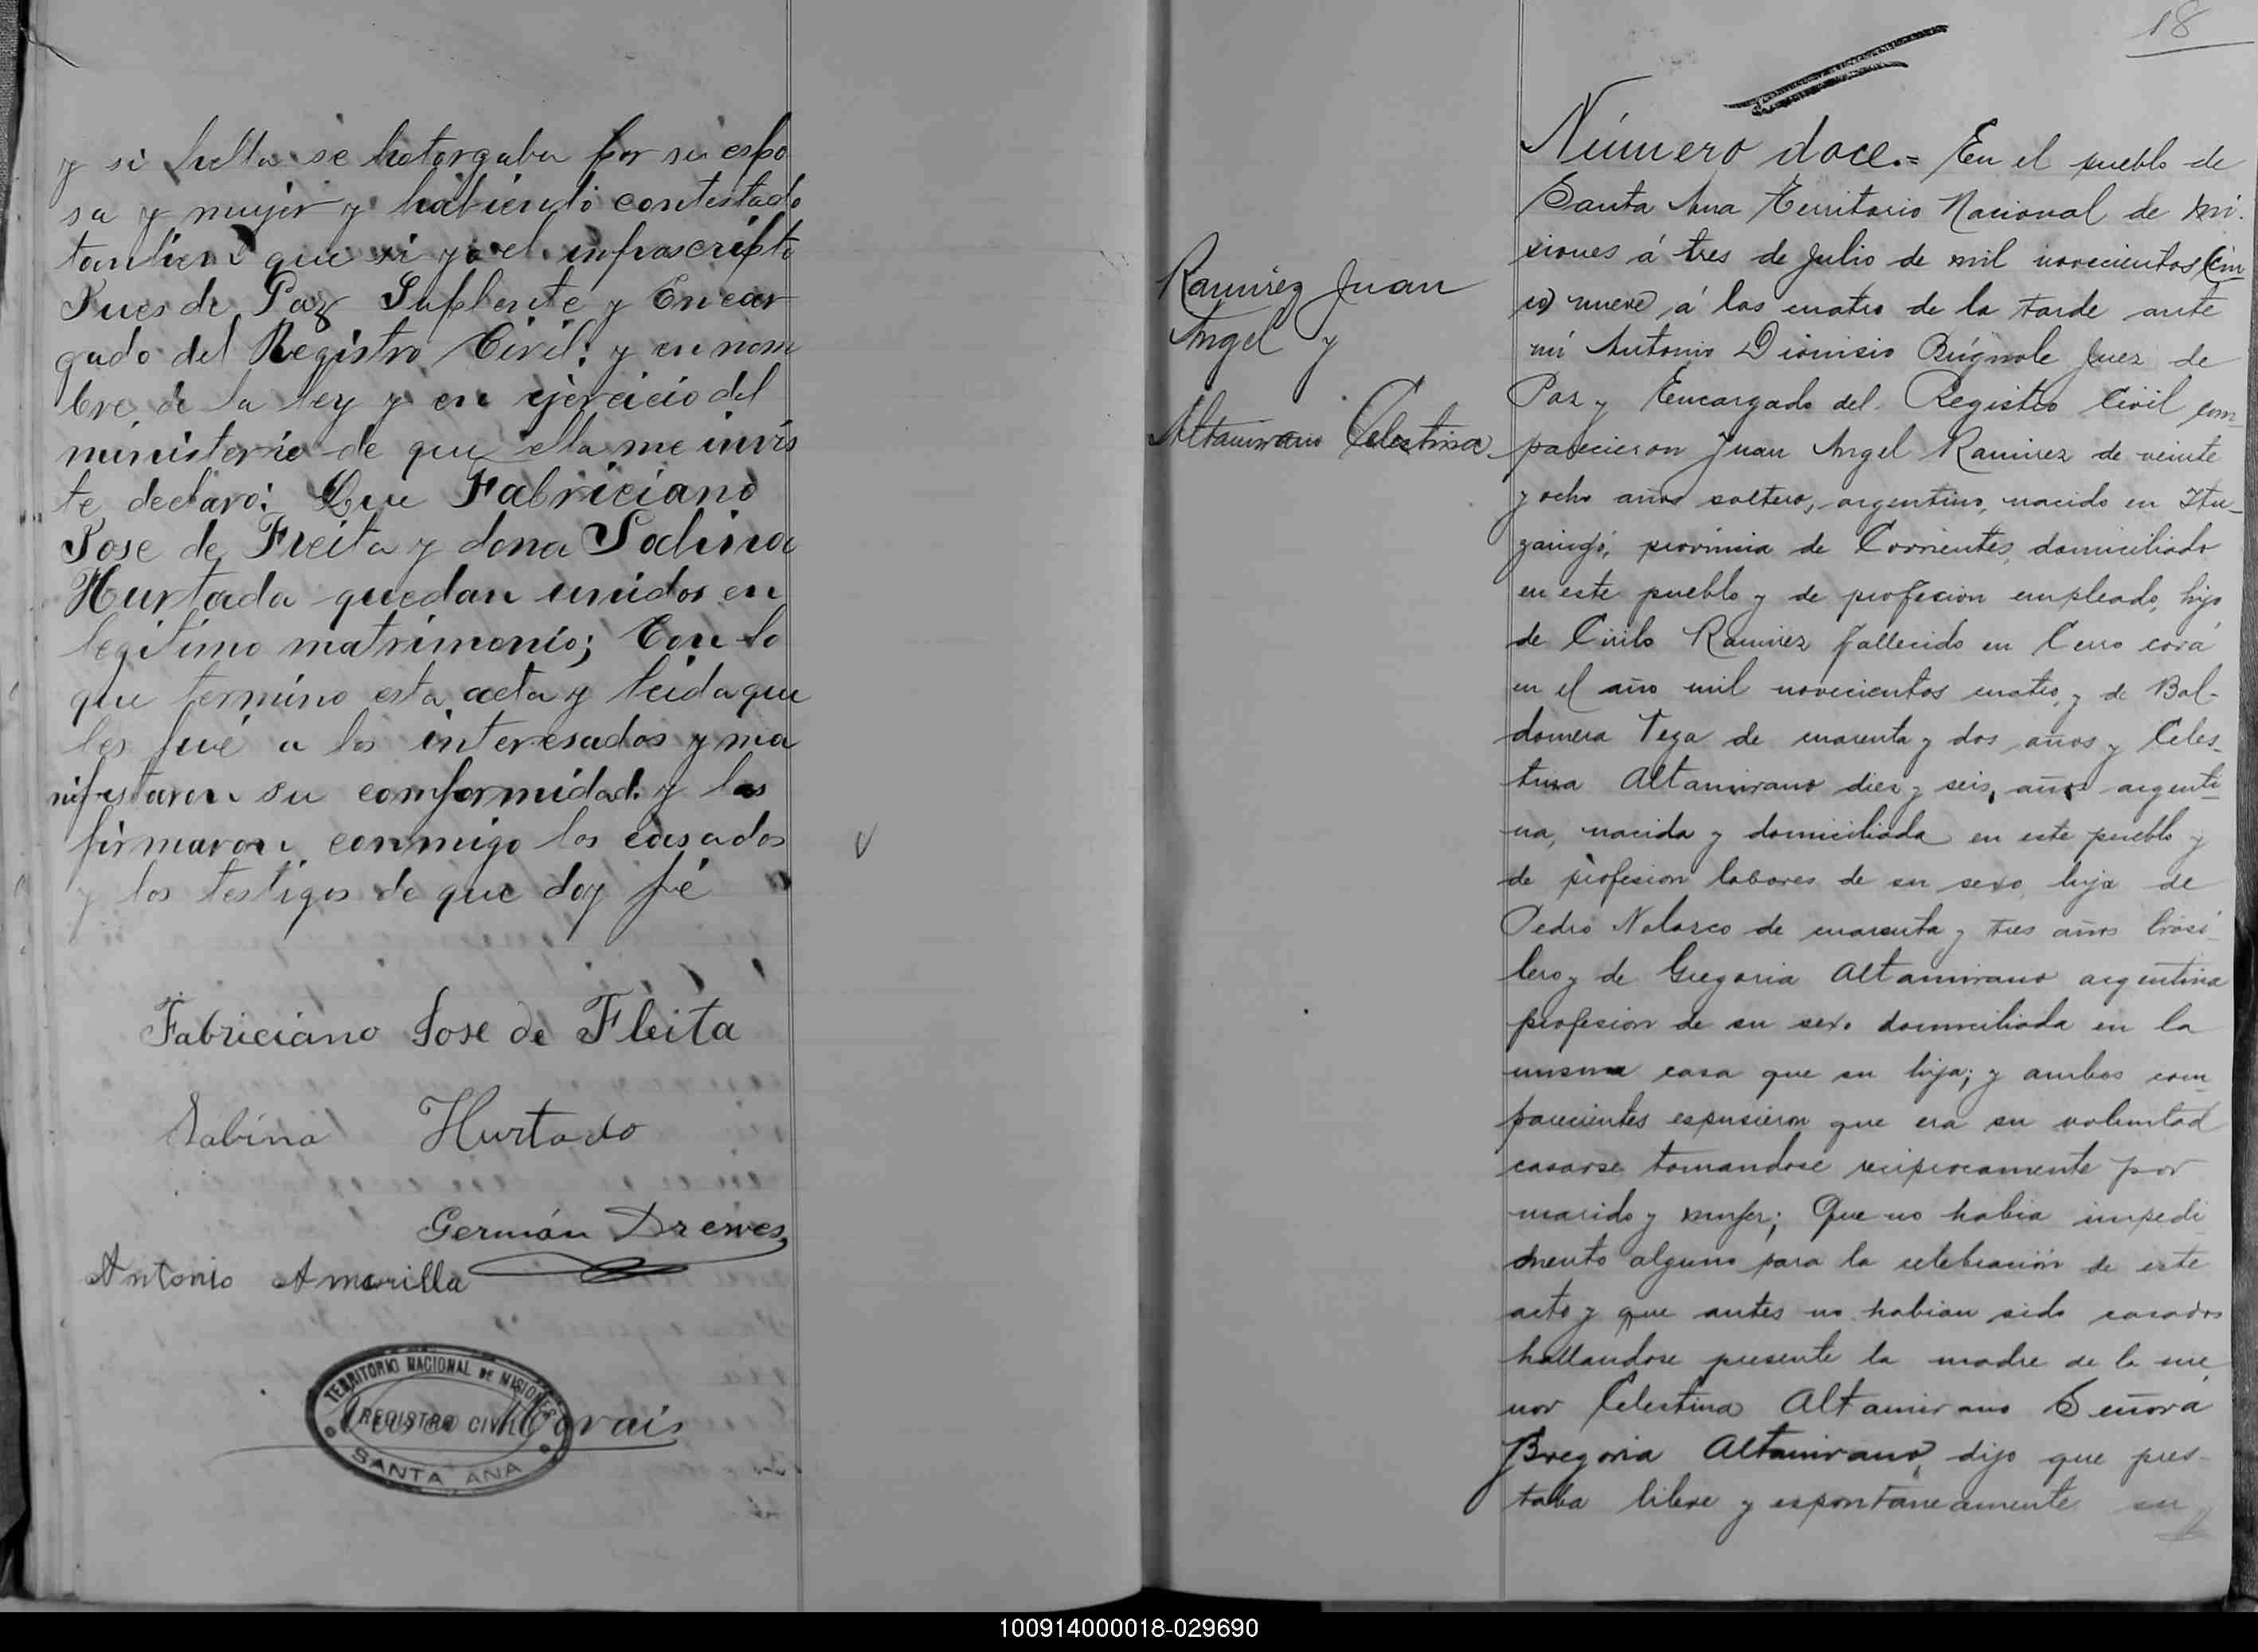 y si hella se hotorgaba por su espo
sa y mujer y habiendo contestado
tanbien que si yo el infrascripto
Jues de Paz Suplente y Encar
gado del Registro Civil; y en nom
bre de la ley y en ejercicio del
ministerio de que ella me invis
te declaro: Que Fabriciano
Jose de Freita y dona Sabina
Hurtada quedan unidos en
legitimo matrimonio; Con lo
que termino esta acta y leida que
les fué a los interesados y ma
nifestaron su conformidad y las
firmaron conmigo los casados
y los testigos de que doy fé
Fabriciano Jose de Fleita
Sabina Hurtado
Germán Drewes
Antonio Amarilla
TERRITORIO NACIONAL DE MISIONES
REGISTRO CIVIL
Morais
SANTA ANA
18
Ramirez Juan
Angel y
Altamirano Celestina
Número doce.= En el pueblo de
Santa Ana Territorio Nacional de Mi-
siones á tres de Julio de mil novecientos (cin
co) nueve, á las cuatro de la tarde ante
mi Antonio Dionisio Búgnole Juez de
Paz y Encargado del Registro Civil com-
parecieron Juan Angel Ramirez de veinte
y ocho años soltero, argentino, nacido en Itu-
zaingó, provincia de Corrientes, domiciliado
en este pueblo y de profecion empleado, hijo
de Cirilo Ramirez fallecido en Cerro corá
en el año mil novecientos cuatro, y de Bal-
domera Vega de cuarenta y dos años y Celes-
tina Altamirano diez y seis, años argenti-
na, nacida y domiciliada en este pueblo y
de profesion labores de su sexo, hija de
Pedro Nolasco de cuarenta y tres años brasi-
lero y de Gregoria Altamirano argentina
profesion de su sexo domiciliada en la
misma casa que su hija; y ambos com-
parecientes espusieron que era su voluntad
casarse tomandose reciprocamente por
marido y mujer; Que no habia impedi-
mento alguno para la celebración de este
acto y que antes no habian sido casados
hallandose presente la madre de la me-
nor Celestina Altamirano Señora
Gregoria Altamirano, dijo que pres-
taba libre y espontaneamente su
100914000018-029690